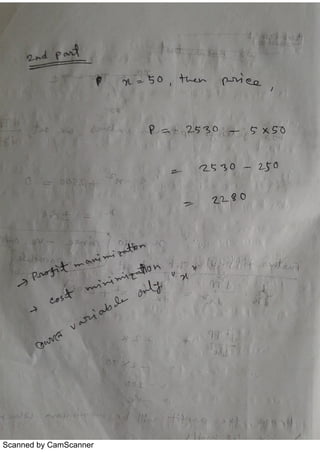 2nd part
P x = 50, then price,
P = 2530 - 5 x 50
= 2530 - 250
= 2280
→ Profit maximization
→ cost minimization
variable only "x"
Scanned by CamScanner